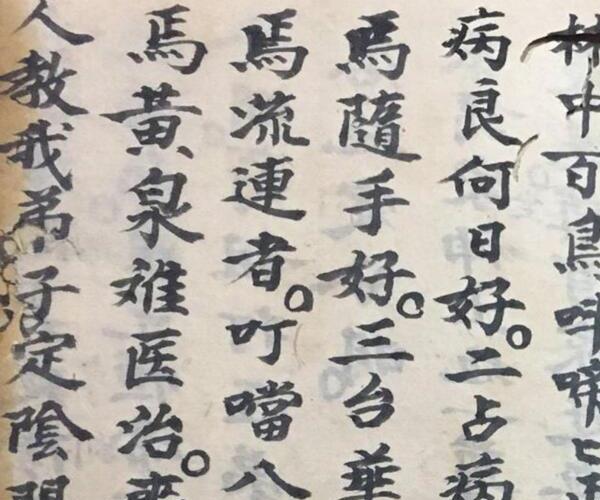 林中百鳥叫啼
病良何日好。二占病
焉隨手好。三台華
焉流連者。叮噹八
焉黃泉难医治。
人教我弟子定陰